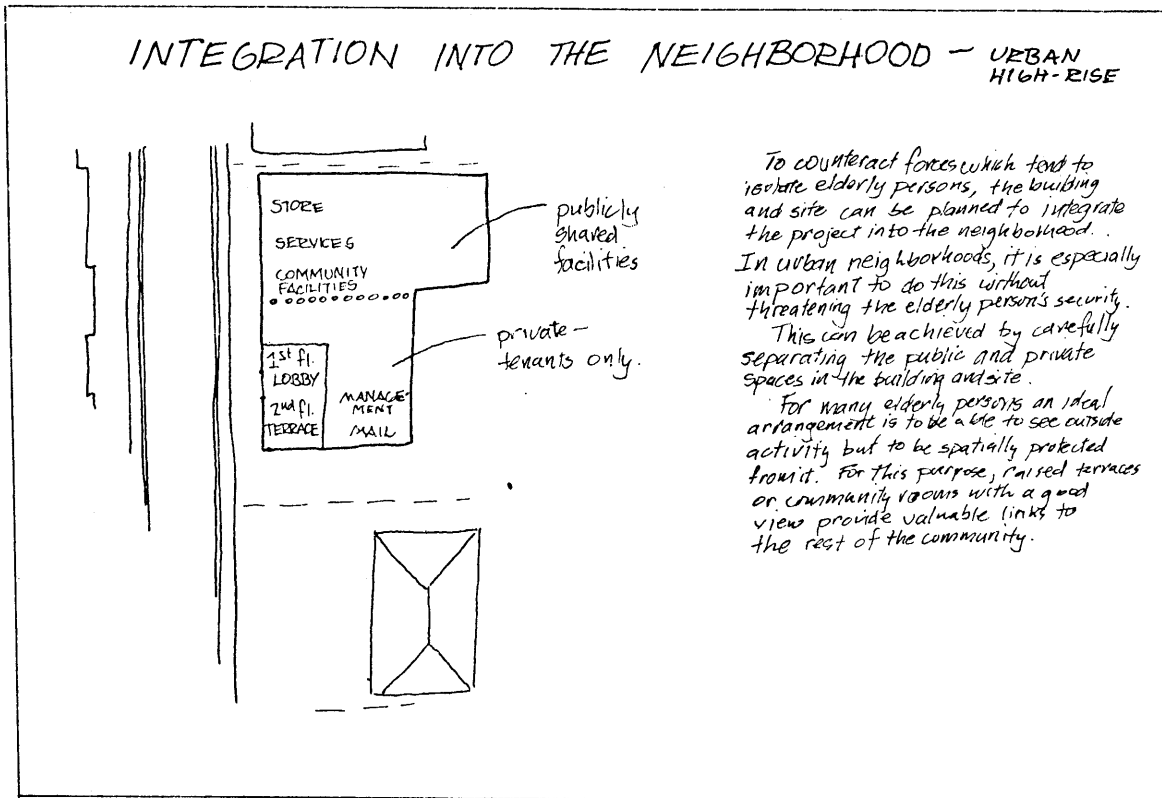 INTEGRATION INTO THE NEIGHBORHOOD – URBAN
HIGH-RISE
STORE
SERVICES
COMMUNITY
FACILITIES
publicly
shared
facilities
1st fl.
LOBBY
2nd fl.
TERRACE
MANAGE-
MENT
MAIL
private –
tenants only.
To counteract forces which tend to
isolate elderly persons, the building
and site can be planned to integrate
the project into the neighborhood.
In urban neighborhoods, it is especially
important to do this without
threatening the elderly person's security.
This can be achieved by carefully
separating the public and private
spaces in the building and site.
For many elderly persons an ideal
arrangement is to be able to see outside
activity but to be spatially protected
from it. For this purpose, raised terraces
or community rooms with a good
view provide valuable links to
the rest of the community.